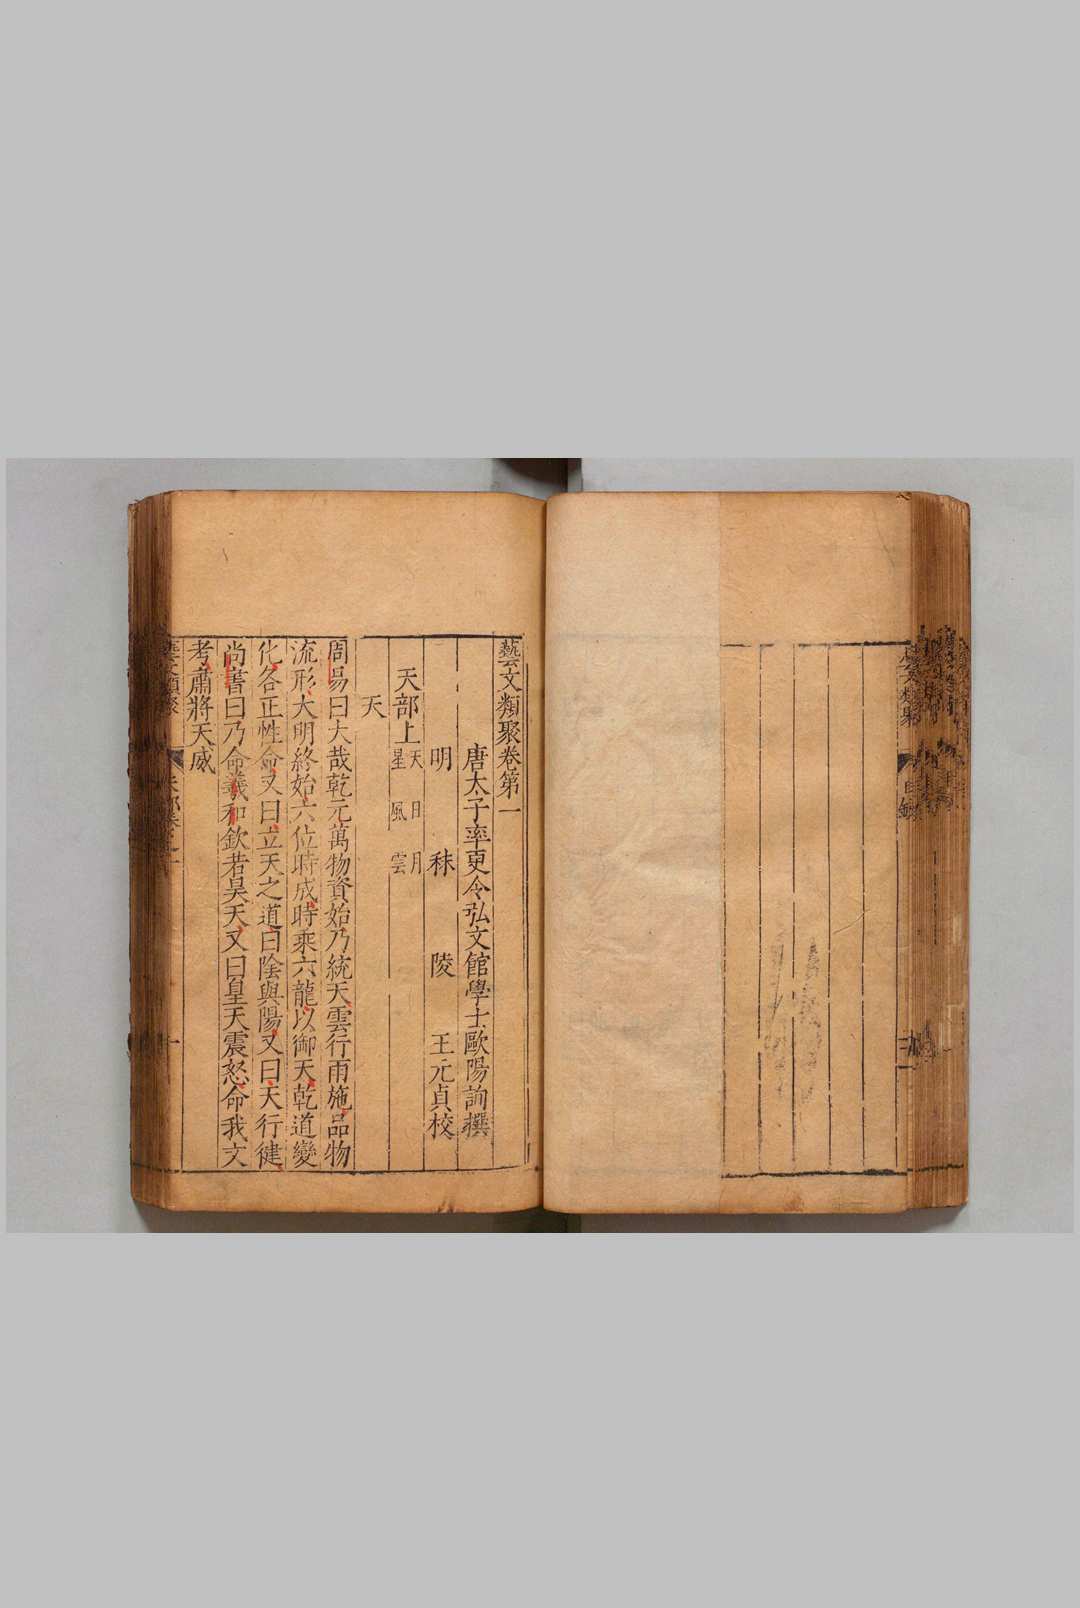 藝文類聚卷第一
唐太子率更令弘文館學士歐陽詢撰
明 秣 陵 王元貞校
天部上 天 日 月 星 風 雲
天
周易曰大哉乾元萬物資始乃統天雲行雨施品物
流形大明終始六位時成時乘六龍以御天乾道變
化各正性命又曰立天之道曰陰與陽又曰天行健
尚書曰乃命羲和欽若昊天又曰皇天震怒命我文
考肅將天威